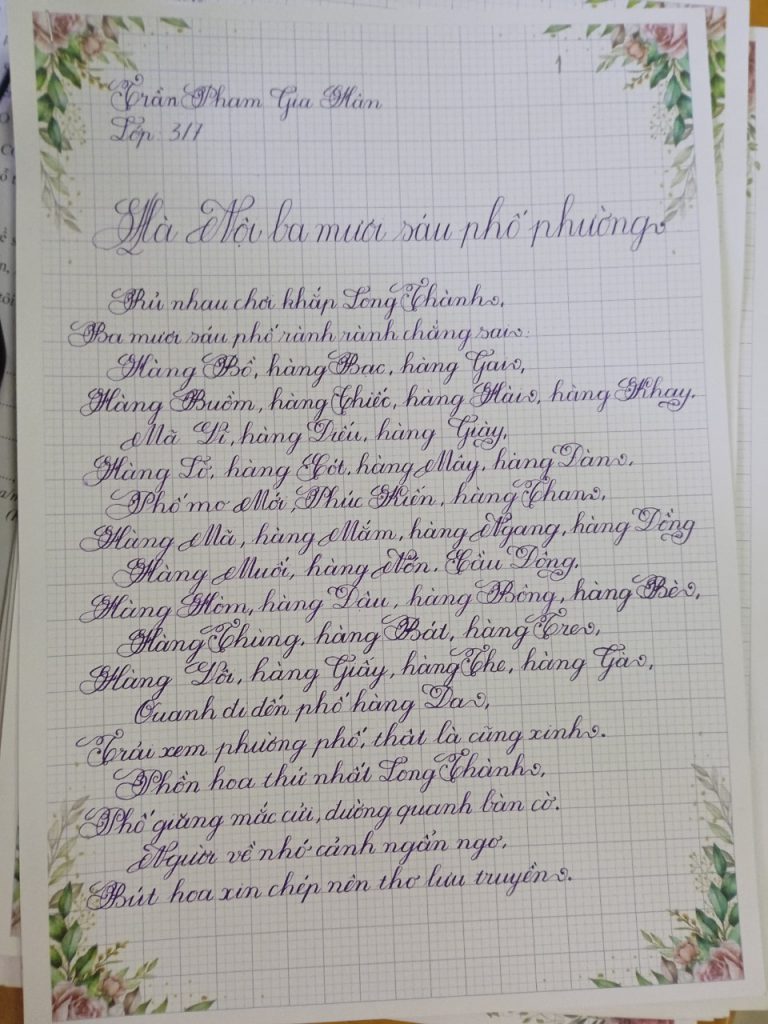 1
Trần Phạm Gia Hân
Lớp: 3/7
Hà Nội ba mươi sáu phố phường
Rủ nhau chơi khắp Long Thành,
Ba mươi sáu phố rành rành chẳng sai:
Hàng Bồ, hàng Bạc, hàng Gai,
Hàng Buồm, hàng Thiếc, hàng Hài, hàng Khay,
Mã Vĩ, hàng Điếu, hàng Giày,
Hàng Lờ, hàng Cót, hàng Mây, hàng Đàn,
Phố mo Mới, Phúc Kiến, hàng Than,
Hàng Mã, hàng Mắm, hàng Ngang, hàng Đồng
Hàng Muối, hàng Nón, Cầu Đông,
Hàng Hòm, hàng Đậu, hàng Bông, hàng Bè,
Hàng Thùng, hàng Bát, hàng Tre,
Hàng Vôi, hàng Giấy, hàng The, hàng Gà,
Quanh đi đến phố hàng Da,
Trải xem phường phố, thật là cũng xinh.
Phồn hoa thứ nhất Long Thành,
Phố giăng mắc cửi, đường quanh bàn cờ.
Người về nhớ cảnh ngẩn ngơ,
Bút hoa xin chép nên thơ lưu truyền.